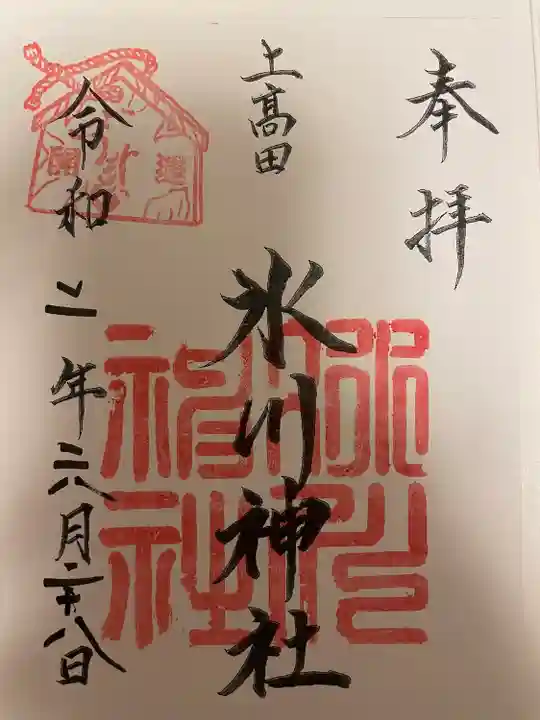 奉拝
上髙田
氷川神社
令和二年六月二十八日
氷川
神社
開運